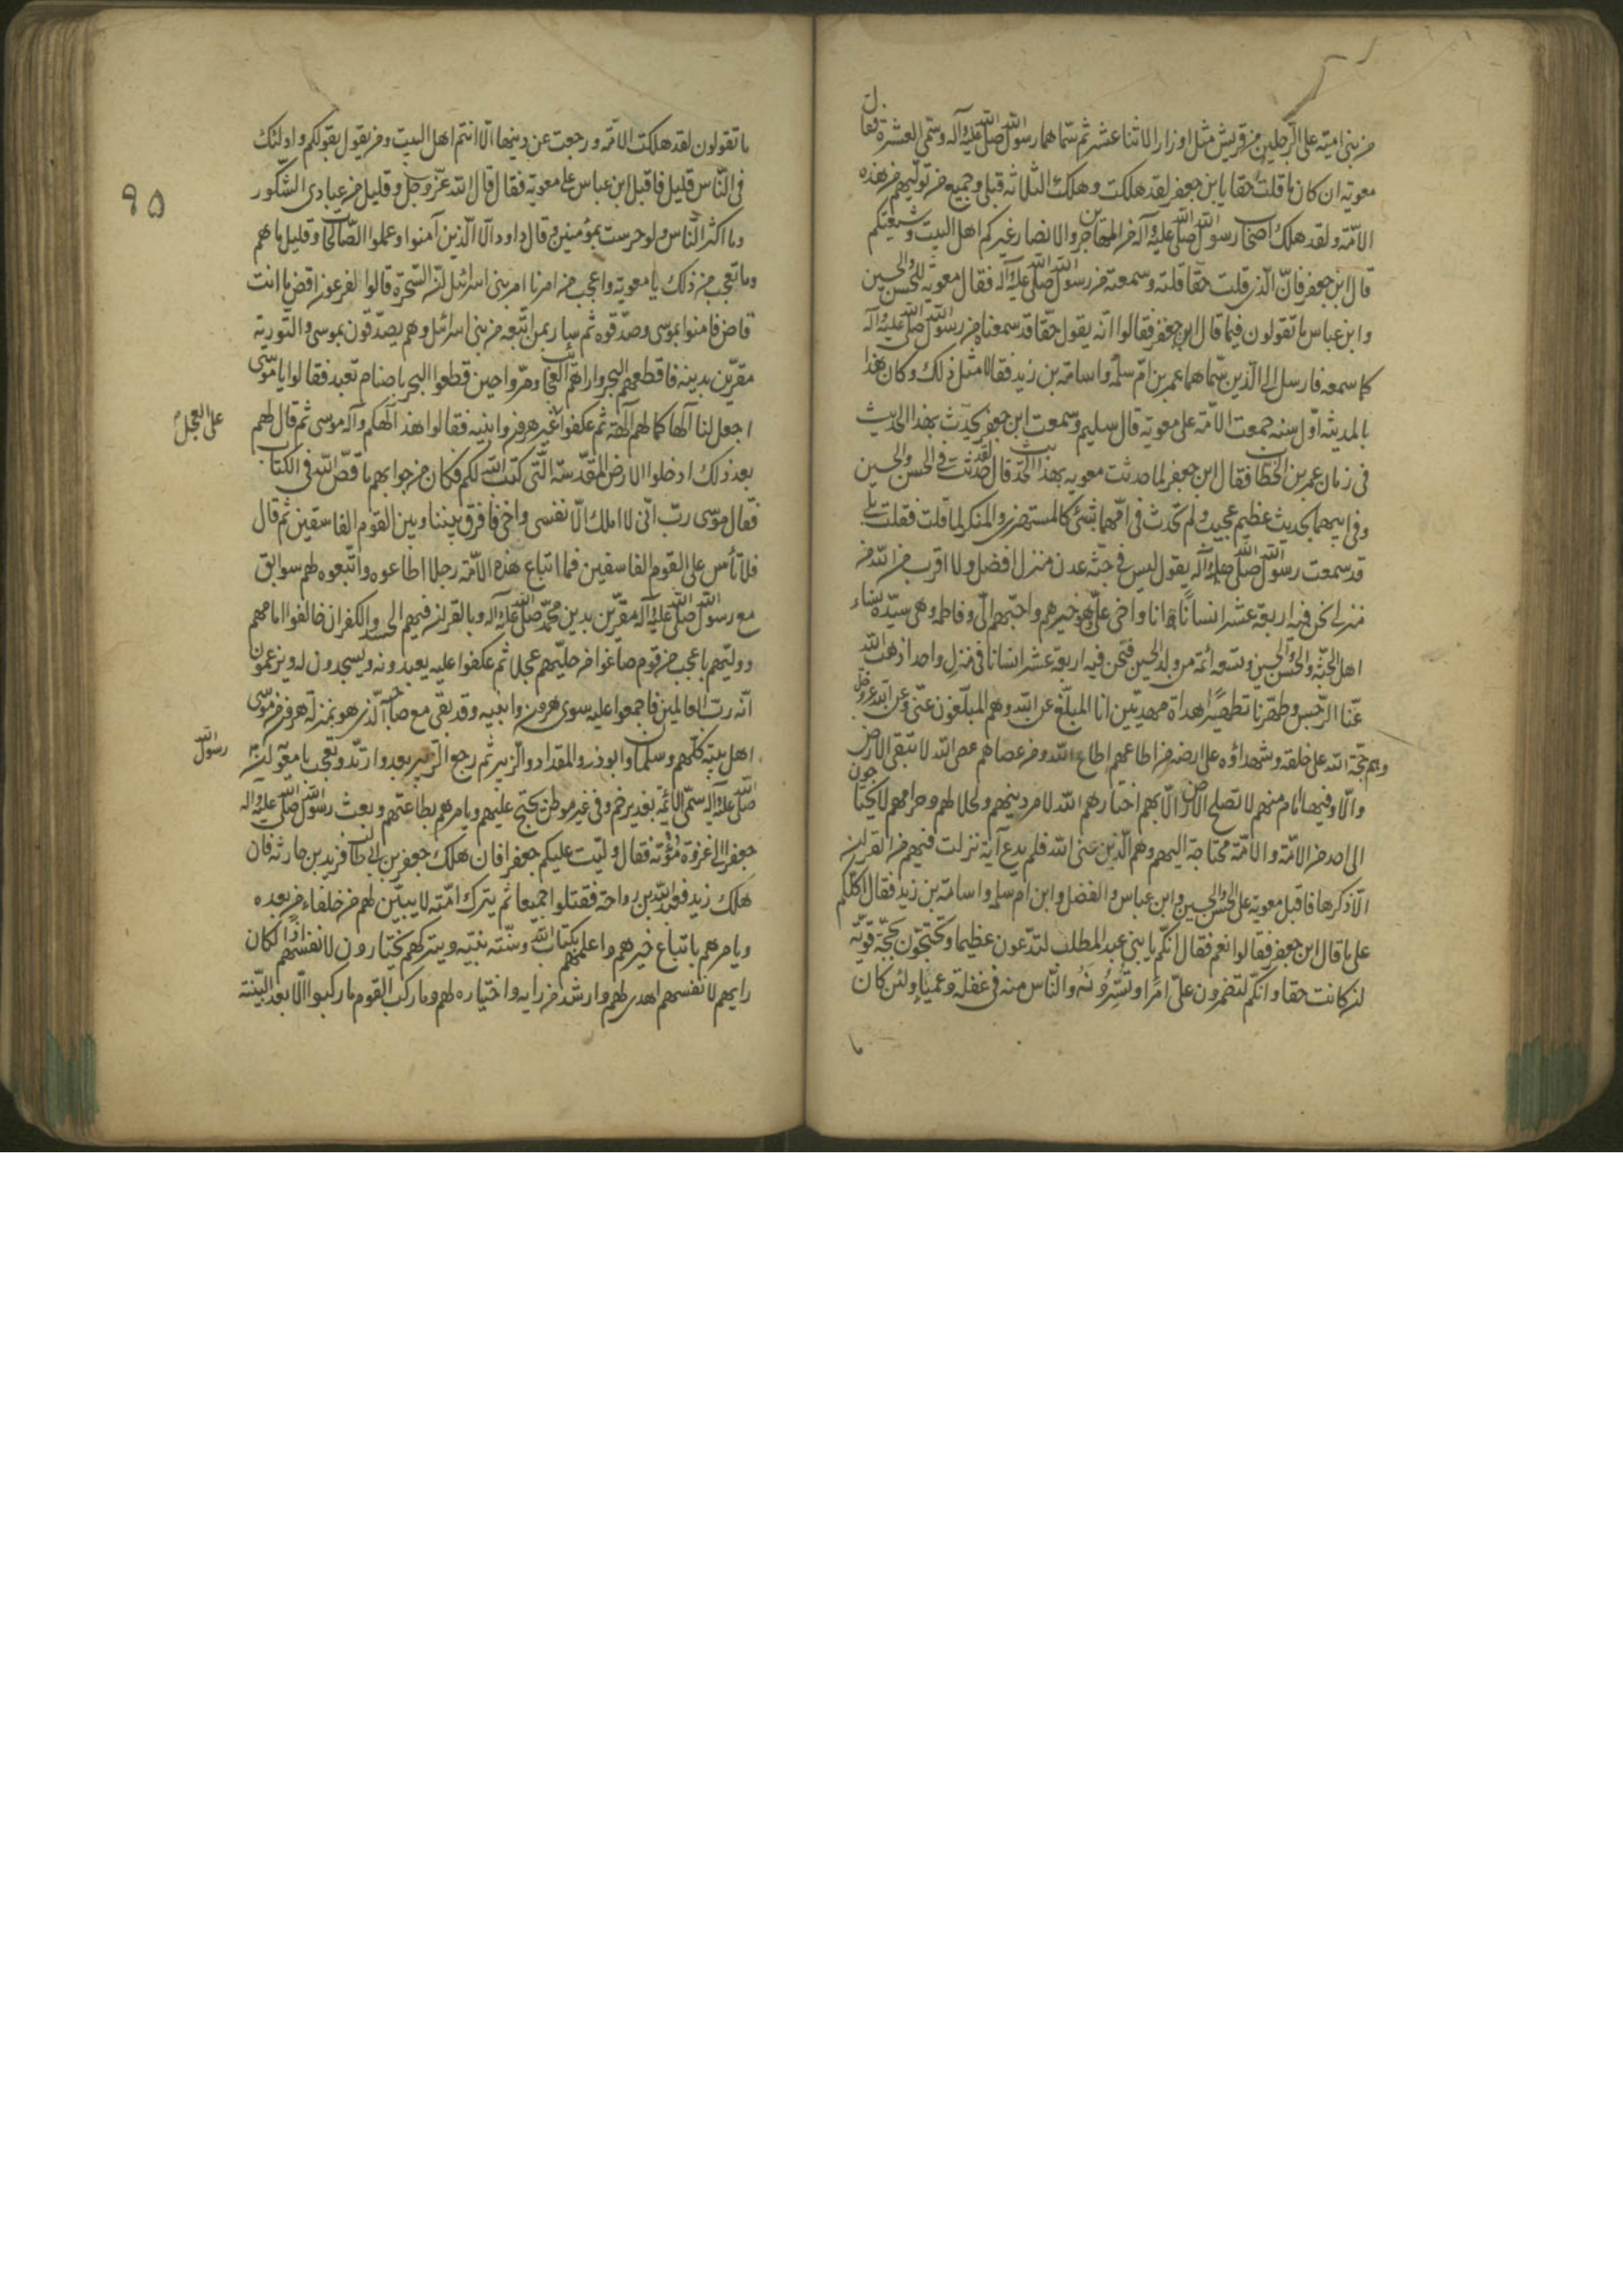 من بنی امیّه علی الرّجلین من قریش مثل اوزار الاثنا عشر ثم سّماهما رسول الله صلی الله علیه وآله وسمّی العشرة فقال
معویه ان کان ما قلت حقا یابن جعفر لقد هلکت وهلک الثلاثه قبلی وجمیع من تولّیهم من هذه
الامّة ولقد هلک اصحاب رسول الله صلی الله علیه وآله من المهاجرین والانصار غیرکم اهل البیت وشیعتکم
قال ابن جعفر فانّ الّذی قلت حقّا قلته وسمعته من رسول الله صلی الله علیه وآله فقال معویة للحسن والحسین
وابن عباس ما تقولون فیما قال ابن جعفر فقالوا انّه یقول حقّا قد سمعناه من رسول الله صلی الله علیه وآله
کما سمعه فارسل الی الّذین سمّاهما عمر بن امّ سلمه واسامة بن زید فقالا مثل ذلک وکان هذا
بالمدینه اوّل سنه جمعت الامّة علی معویة قال سلیم وسمعت ابن جعفر یحدّث بهذا الحدیث
فی زمان عمر بن الخطاب فقال ابن جعفر لما حدثت معویه بهذا الحدیث قال لقد حدثت فی الحسن والحسین
وفی ابیهما بحدیث عظیم عجیب ولم تحدث فی امّهما بشیء کالمستهزی والمنکر لما قلت فقلت بلی
قد سمعت رسول الله صلی الله علیه وآله یقول لیس فی جنّة عدن منزل افضل ولا اقرب من الله من
منزلی نحن فیه اربعة عشر انسانا انا واخی علیّ هو خیرهم واحبّهم الیّ وفاطمه وهی سیّدة نساء
اهل الجنّة والحسن والحسین وتسعه ائمّة من ولد الحسین فنحن فیه اربعة عشر انسانا فی منزل واحد اذهب الله
عنّا الرّجس وطهّرنا تطهیرا هداة مهدیّین انا المبلّغ عن الله وهم المبلّغون عنّی وعن الله عزوجل
وهم حجّة الله علی خلقه وشهداؤه علی ارضه من اطاعهم اطاع الله ومن عصاهم عصی الله لا تبقی الارض
والّا وفیها امام منهم لا تصلح الارض الّا بهم اختارهم الله لامر دینهم ولحلالهم وحرامهم لا یحتاجون
الی احد من الامّة والامّة محتاجة الیهم وهم الّذین عنی الله فلم یدع آیة نزلت فیهم من القران
الّا ذکرها فاقبل معویة علی الحسن والحسین وابن عباس والفضل وابن ام سلمه واسامة بن زید فقال اکلّکم
علی ما قال ابن جعفر فقالوا نعم فقال انکّم یا بنی عبد المطلب لتدّعون عظیما وتحتجّون بحجّة قویّه
لن کانت حقا وانکم لتضمرون علیّ امرا وتسّرونه والنّاس منه فی غفلة وعمیاء ولئن کان
ما
ما تقولون لقد هلکت الامّة ورجعت عن دینها الّا انتم اهل البیت ومن یقول بقولکم واولئک
فی النّاس قلیل فاقبل ابن عباس علی معویة فقال قال الله عزّ وجلّ وقلیل من عبادی الشّکور
وما اکثر النّاس ولو حرصت بمؤمنین وقال داود الّا الّذین آمنوا وعملوا الصّالحات وقلیل ما هم
وما تعجب من ذلک یا معویة واعجب من امرنا امر بنی اسرائیل لانّ السّحرة قالوا لفرعون اقض ما انت
قاض فامنوا بموسی وصدّقوه ثم سار بمن اتّبعه من بنی اسرائیل وهم یصدّقون بموسی والتّوریة
مقرّین بدینه فاقطعهم البحر واراهم العجائب وهمّوا حین قطعوا البحر باصنام تعبد فقالوا یا موسی
اجعل لنا آلها کما لهم آلهة ثم عکفوا غیر هرون وابنیه فقالوا هذا الهکم واله موسی ثم قال لهم
علی العجل
بعد ذلک ادخلوا الارض المقدّسة الّتی کتب الله لکم فکان من جوابهم ما قصّ الله فی الکتاب
فقال موسی ربّ انّی لا املک الّا نفسی واخی فافرق بیننا وبین القوم الفاسقین ثم قال
فلا تأس علی القوم الفاسقین فما اتباع هذه الامّة رجلا اطاعوه واتّبعوه لهم سوابق
مع رسول الله صلی الله علیه وآله مقرّین بدین محمّد صلی الله علیه وآله وبالقران فیهم الحسد والکفران فخالفوا امامهم
وولیّهم باعجب من قوم صاغوا من حلیّهم عجلا ثم عکفوا علیه یعبدونه ویسجدون له ویزعمون
انّه ربّ العالمین فاجمعوا علیه سوی هرون وابنیه وقد بقی مع صاحبنا الّذی هو بمنزلة هرون من موسی
اهل بیته کلّهم وسلمان وابو ذر والمقداد والزّبیر ثم رجع الزّبیر بعد وارتدّ وتعجب یا معویة انّ
رسول الله
صلی الله علیه وآله سمّی الائمّة بغدیر خم وفی غیر موطن یحتج علیهم ویامرهم بطاعتهم وبعث رسول الله صلی الله علیه وآله
جعفر الی غزوة مؤته فقال ولّیت علیکم جعفرا فان هلک جعفر بن ابی طالب فزید بن حارثه فان
هلک زید فعبدالله بن رواحة فقتلوا جمیعا ثم یترک امّته لا یبیّن لهم من خلفاءه من بعده
ویامرهم باتباع خیرهم واعلمهم بکتاب الله وسنّته نبیّه ویترکهم یختارون لانفسهم اذا لکان
رایهم لانفسهم اهدی لهم وارشد من رایه واختیاره لهم وما رکب القوم ما رکبوا الّا بعد البیّنة
۹۵